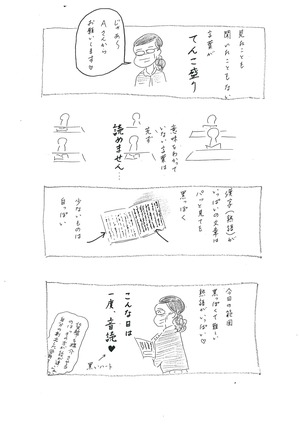 見たことも
聞いたこともない
言葉が
てんこ盛り
じゃあ〜
Aさんから
お願いしますね
意味もわかって
いない言葉は
先ず
読めません…
漢字(熟語)が
いっぱいの文章は
パッと見ても
黒っぽく
少ないものは
白っぽい
今日の範囲
黒っぽくて難しい
熟語がいっぱい♡
こんな日は
一度、音読♥
黒いハート